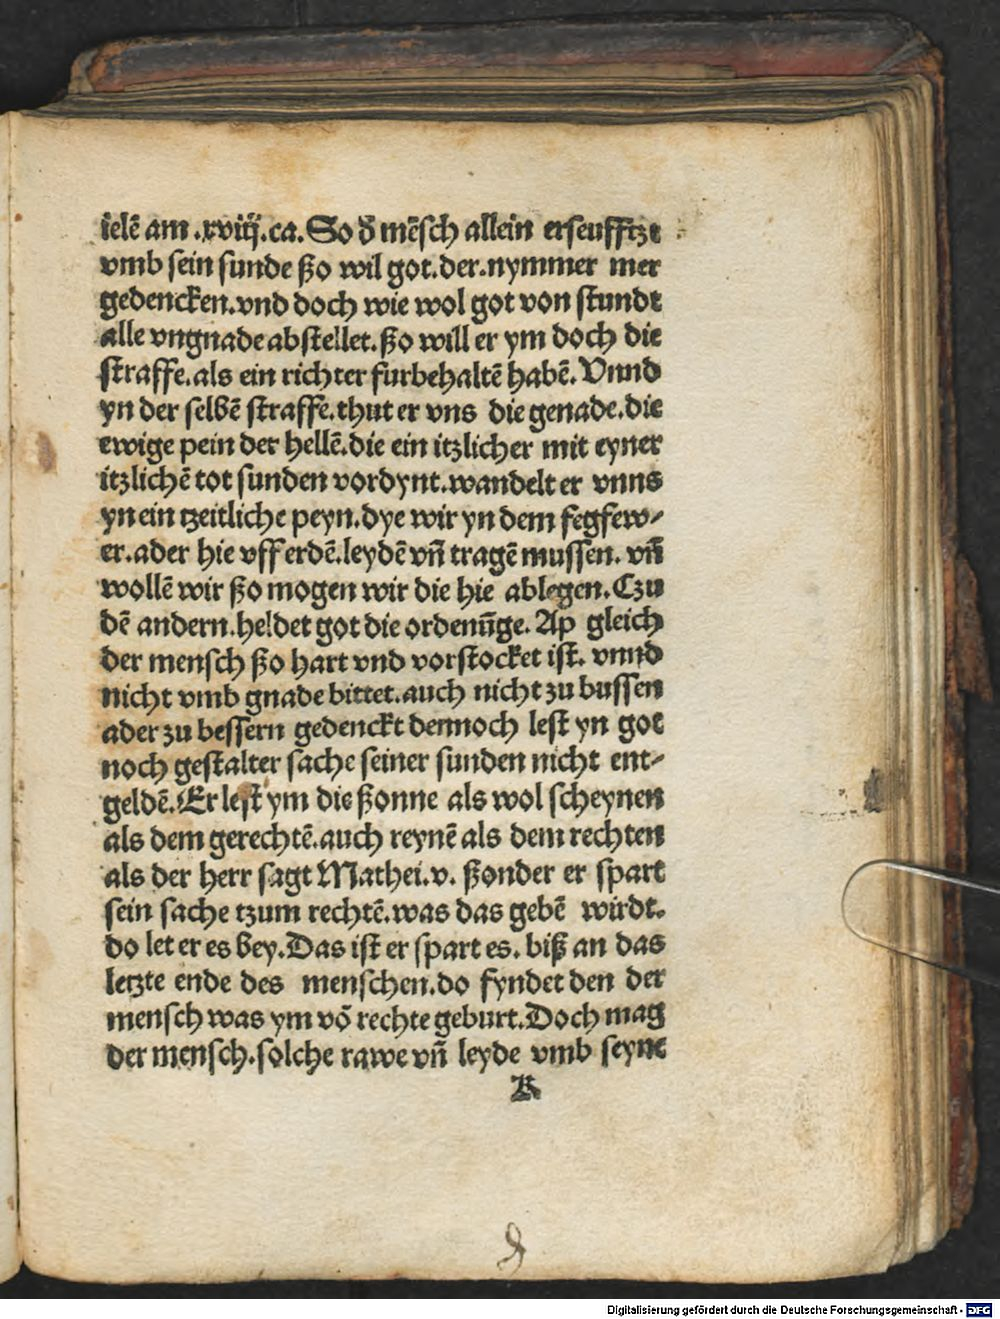 ielē am .xviij.ca. So d̄ mēsch allein erseufftzt
vmb sein sunde ßo wil got.der.nymmer mer
gedencken.vnd doch wie wol got von stundt
alle vngnade abstellet.ßo will er ym doch die
straffe.als ein richter furbehaltē habē. Vnnd
yn der selbē straffe.thut er vns die genade.die
ewige pein der hellē.die ein itzlicher mit eyner
itzlichē tot sunden vordynt.wandelt er vnns
yn ein tzeitliche peyn.dye wir yn dem fegfew⸗
er.ader hie vff erdē.leydē vn̄ tragē mussen. vn̄
wollē wir ßo mogen wir die hie ablegen.Czu
dē andern.heldet got die ordenūge. Ap gleich
der mensch ßo hart vnd vorstocket ist. vnnd
nicht vmb gnade bittet.auch nicht zu bussen
ader zu bessern gedenckt dennoch lest yn got
noch gestalter sache seiner sunden nicht ent⸗
geldē.Er lest ym die ßonne als wol scheynen
als dem gerechtē.auch reynē als dem rechten
als der herr sagt Mathei.v. ßonder er spart
sein sache tzum rechtē.was das gebē wirdt.
do let er es bey.Das ist er spart es. biß an das
letzte ende des menschen.do fyndet den der
mensch was ym vō rechte geburt.Doch mag
der mensch.solche rawe vn̄ leyde vmb seyne
K
Digitalisierung gefördert durch die Deutsche Forschungsgemeinschaft - DFG